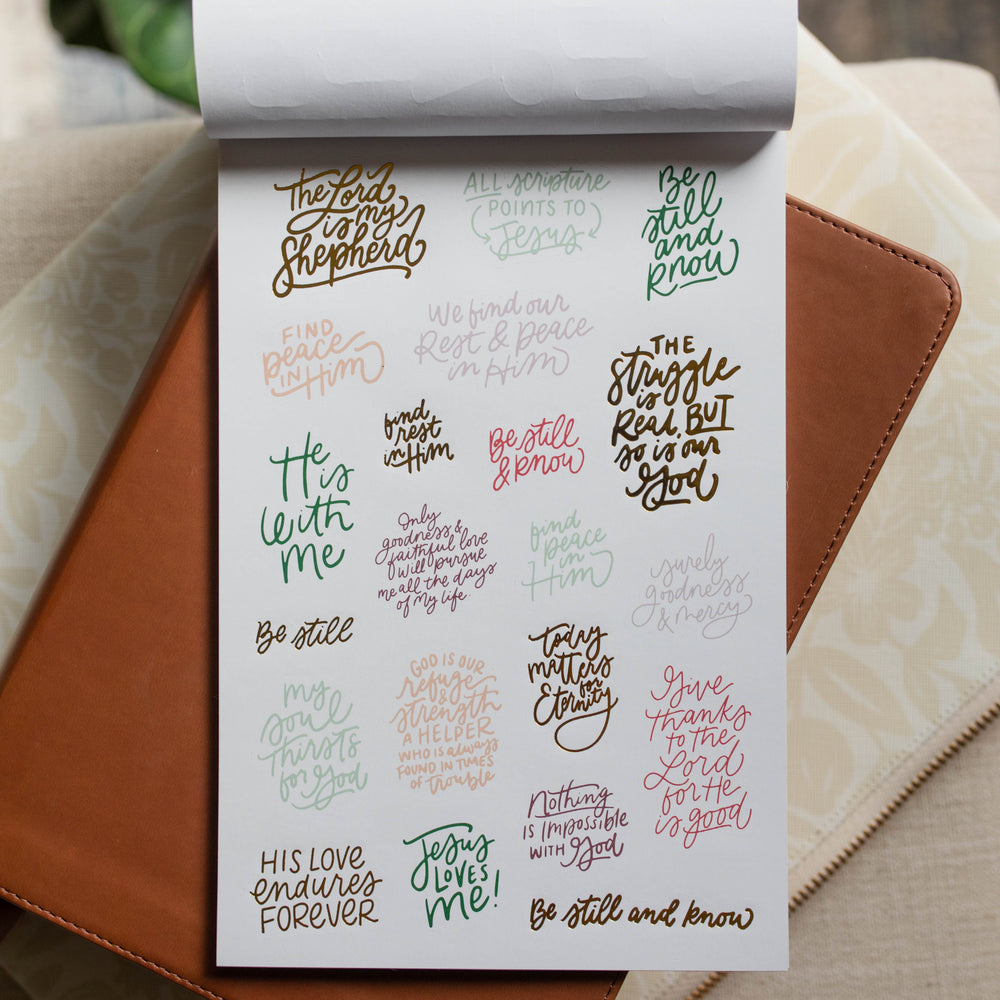 The Lord
is my
Shepherd
ALL scripture
POINTS TO
Jesus
Be
still
and
know
FIND
peace
IN Him
We find our
Rest & Peace
in Him
THE
struggle
is
Real, BUT
so is our
God
find
rest
in Him
Be still
& know
He
is
with
me
Only
goodness &
faithful love
will pursue
me all the days
of my life.
find
peace
in
Him
surely
goodness
& mercy
Be still
GOD IS OUR
refuge
&
strength
A HELPER
WHO is always
FOUND IN TIMES
of trouble
today
matters
for
Eternity
my
soul
thirsts
for God
Give
thanks
to the
Lord
for He
is good
Nothing
IS Impossible
WITH God
HIS LOVE
endures
FOREVER
Jesus
LOVES
me!
Be still and know